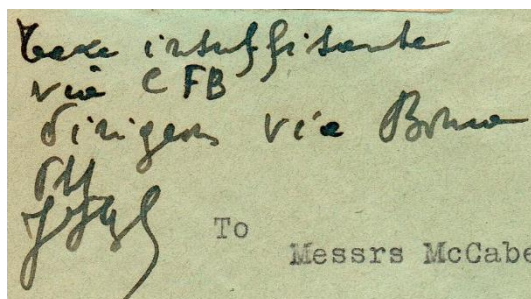 taxe insuffisante
via C F B
dirigeons via Boma
To
Messrs McCabe